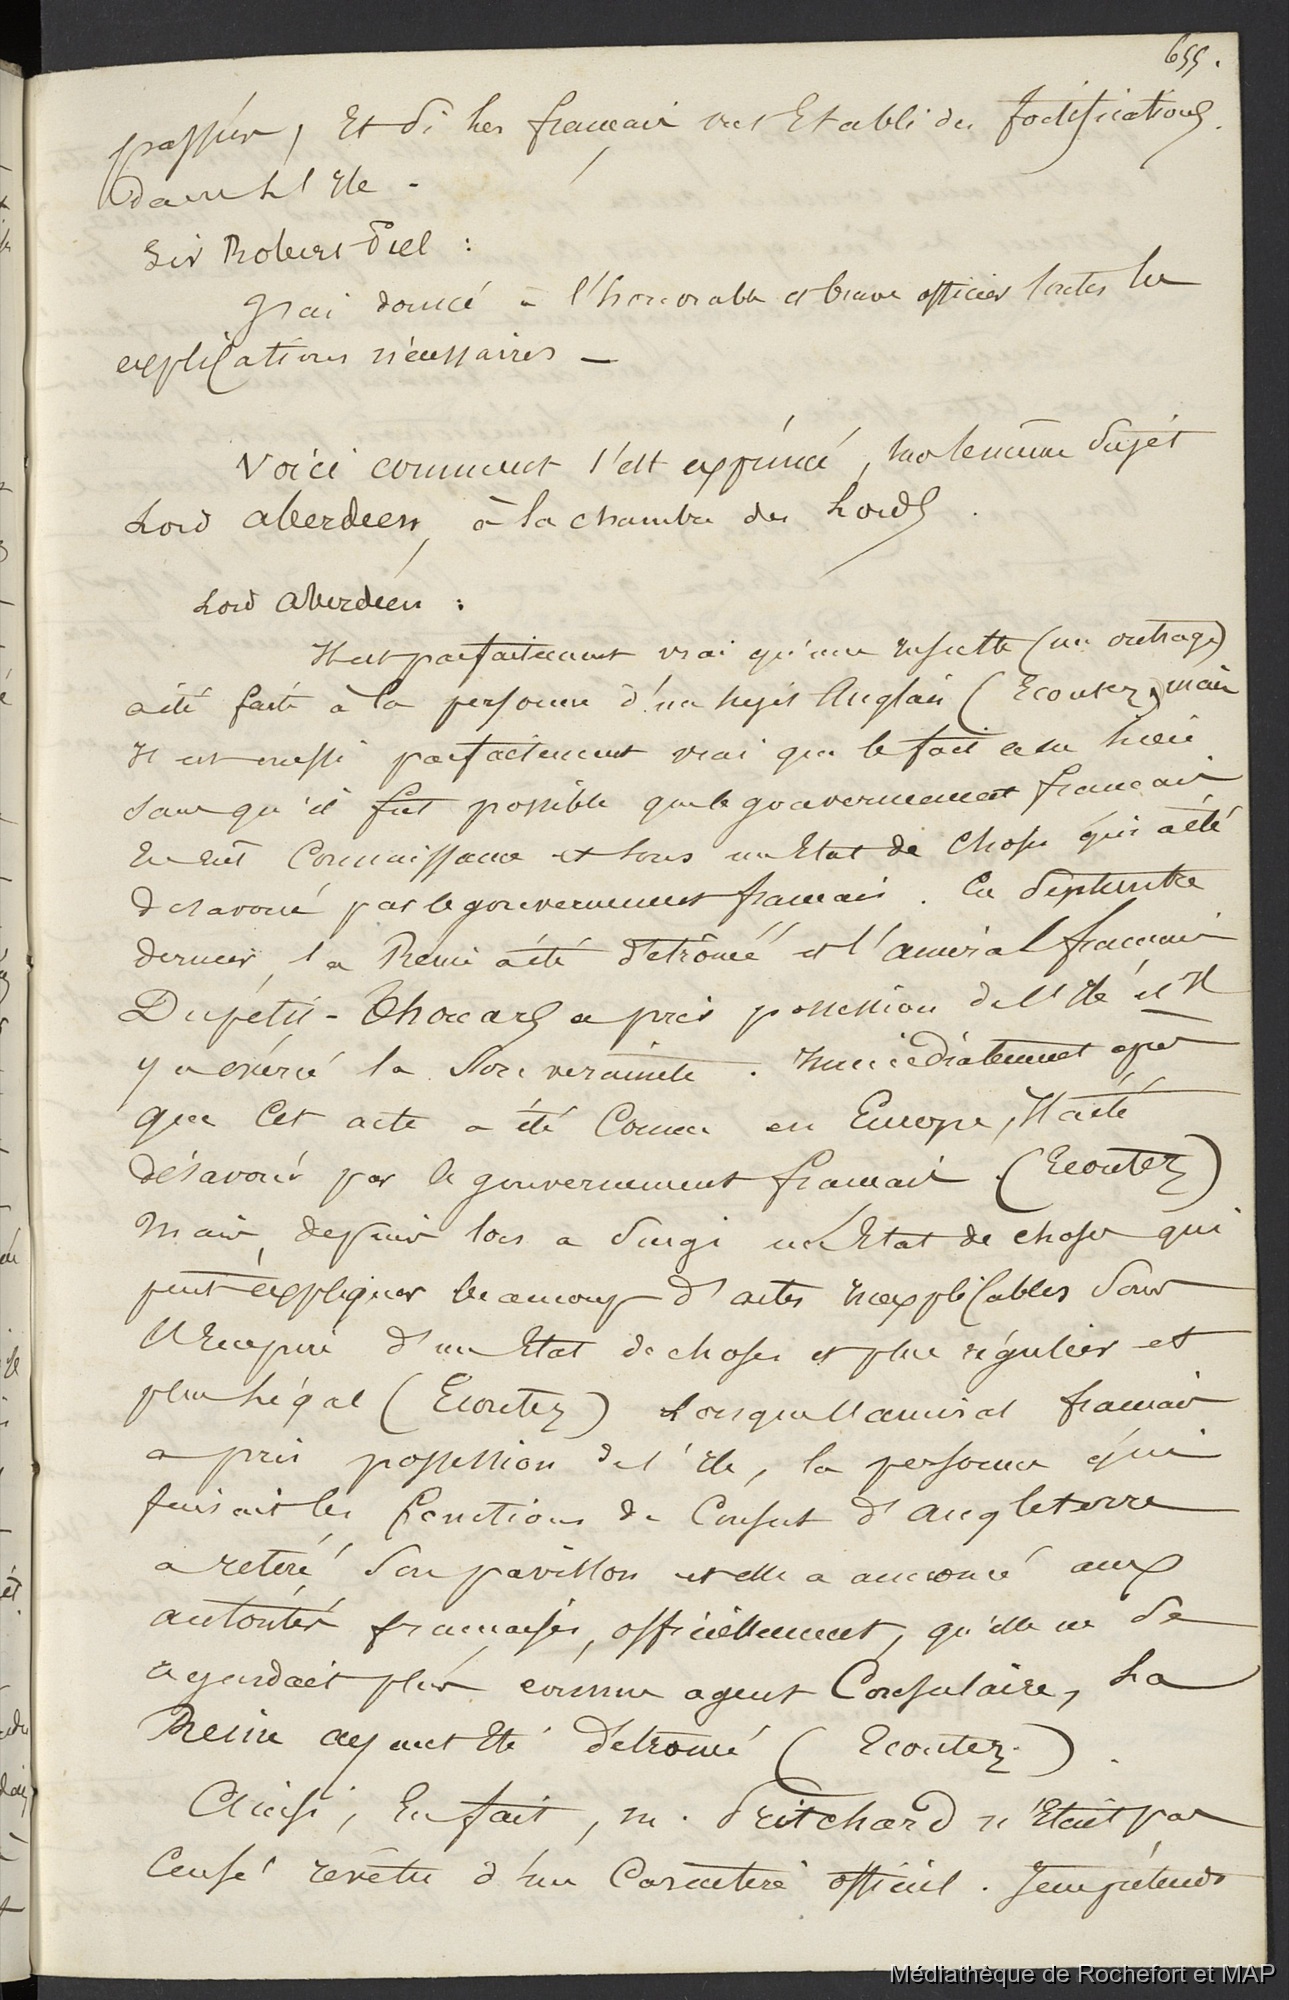 655.
passés, Et Si les français ont Etabli des fortifications
dans L'Ile -
Sir Robert Peel :
J'ai donné à l'honorable et brave officier toutes les
explications nécessaires -
Voici comment s'est exprimé, sur le même Sujét
Lord Aberdeen, à la chambre des Lords.
Lord Aberdeen :
Il est parfaitement vrai qu'une insulte (un outrage)
a été faite à la personne d'un sujet Anglais (Ecoutez) mais
Il est aussi parfaitement vrai que le fait a eu lieu
sans qu'il fut possible que le gouvernement français
En eut Connaissance et sous un Etat de Choses qui a été
desavoué par le gouvernement français. En Septembre
dernier, la Reine a été détrônée et l'amiral français
Dupétit-Thouars a pris possession de l'Ile et Il
y a exercé la Souveraineté. Immédiatement après
que Cet acte a été Connu en Europe, Il a été
désavoué par le gouvernement français. (Ecoutez)
Mais, depuis lors a Surgi un Etat de choses qui
peut expliquer beaucoup d'actes inexplicables Sous
l'Empire d'un Etat de choses et plus régulier et
plus légal (Ecoutez) Lorsque l'amiral français
a pris possession de l'Ile, la personne qui
faisait les fonctions de Consul d'Angleterre
a retiré Son pavillon et elle a annoncé aux
autorités françaises, officiellement, qu'elle ne Se
regardait plus comme agent Consulaire, La
Reine ayant Eté détronée (Ecoutez).
Ainsi, En fait, M. Pritchard n'Etait pas
Censé revêtu d'un Caractère officiel. Je ne prétends
Médiathèque de Rochefort et MAP